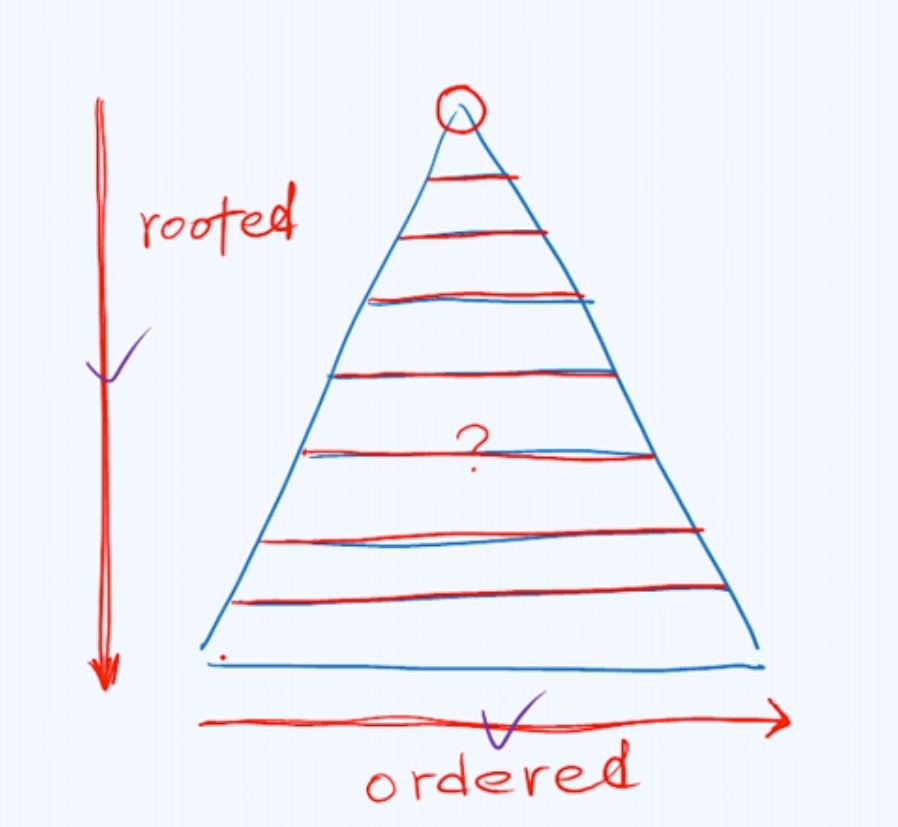 rooted
?
ordered